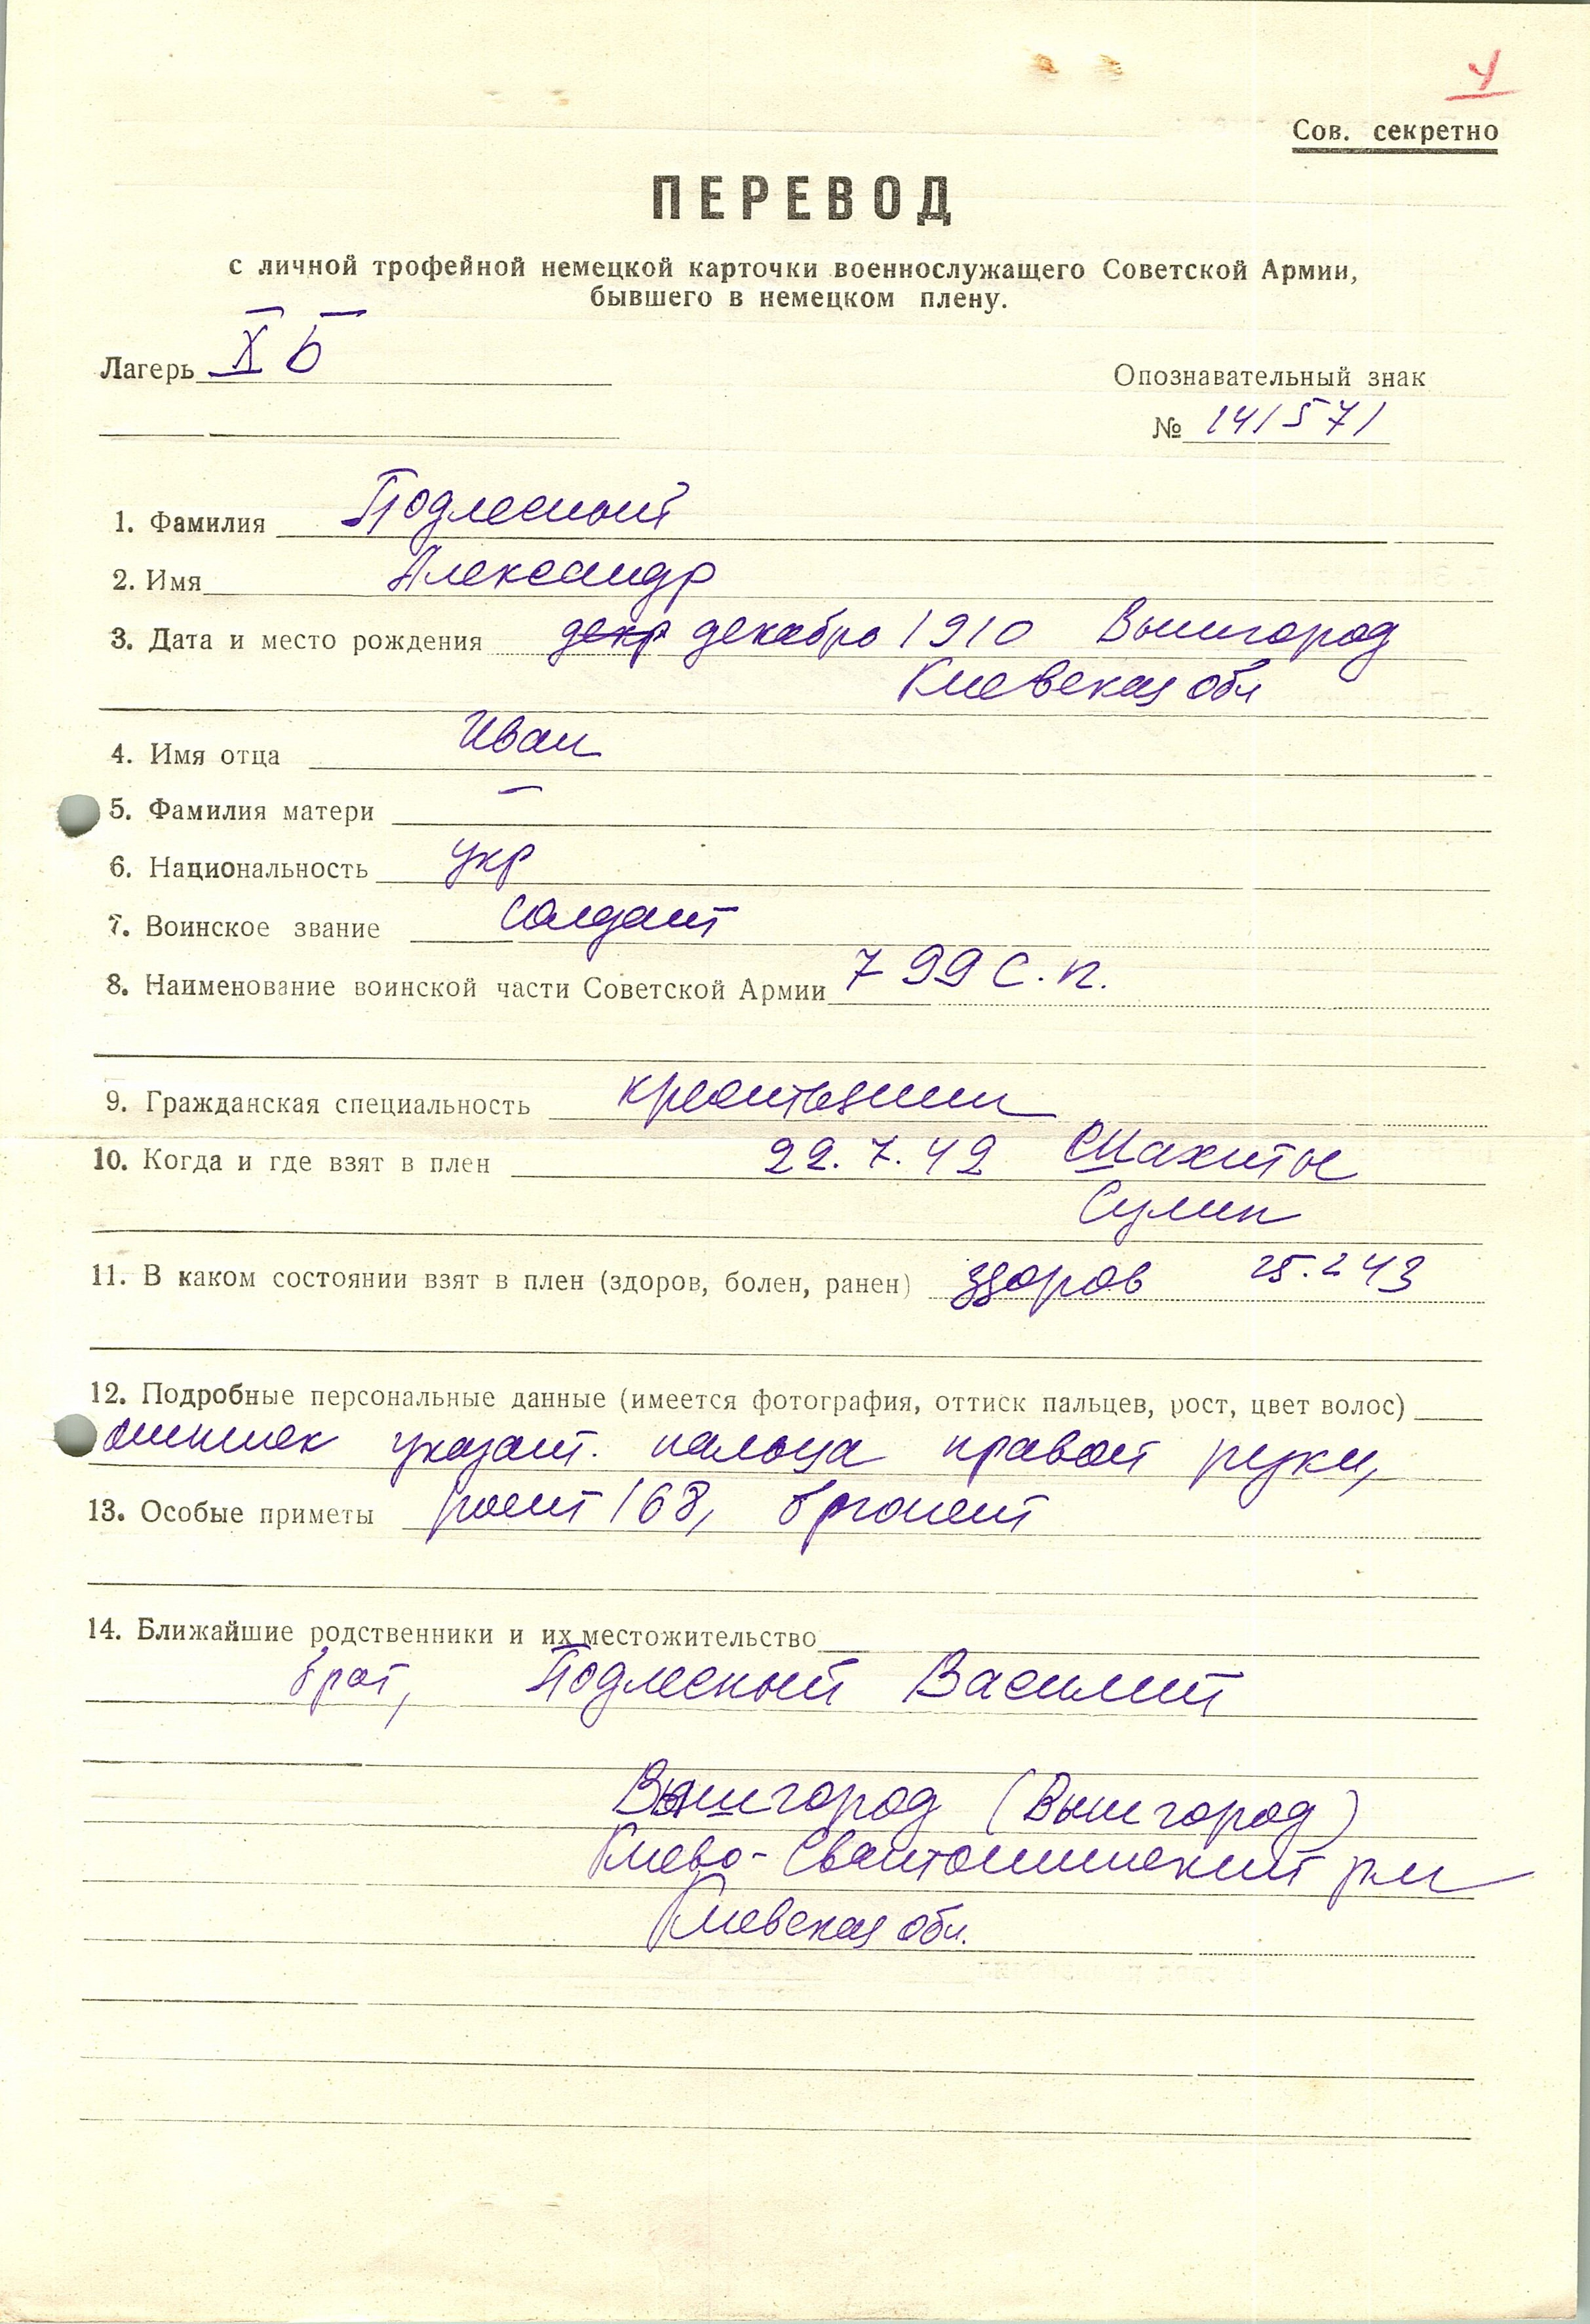 4
Сов. секретно
ПЕРЕВОД
с личной трофейной немецкой карточки военнослужащего Советской Армии,
бывшего в немецком плену.
Лагерь X Б
Опознавательный знак
№ 141571
1. Фамилия Подлесный
2. Имя Александр
3. Дата и место рождения декр декабрь 1910 Вышгород
Киевская обл
4. Имя отца Иван
5. Фамилия матери —
6. Национальность укр
7. Воинское звание солдат
8. Наименование воинской части Советской Армии 799 С.п.
9. Гражданская специальность крестьянин
10. Когда и где взят в плен 22.7.42 Шахиты
Сулин
11. В каком состоянии взят в плен (здоров, болен, ранен) здоров 25.2 43
12. Подробные персональные данные (имеется фотография, оттиск пальцев, рост, цвет волос)
оттиск указат. пальца правой руки,
13. Особые приметы рост 168, брюнет
14. Ближайшие родственники и их местожительство
брат, Подлесный Василий
Вышгород (Вышгород)
Киево-Святошинский
Киевская обл.